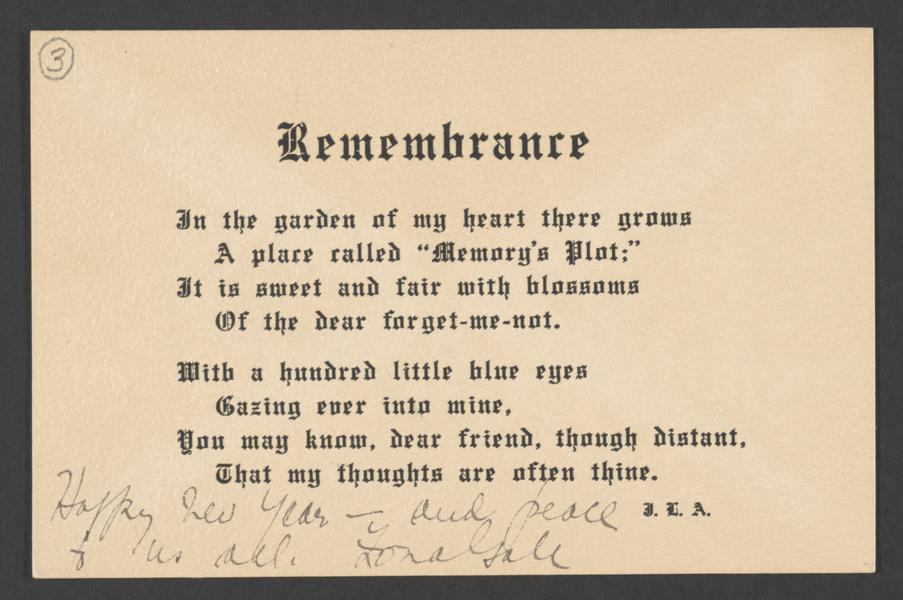 3
Remembrance
In the garden of my heart there grows
A place called “Memory's Plot;”
It is sweet and fair with blossoms
Of the dear forget-me-not.
With a hundred little blue eyes
Gazing ever into mine,
You may know, dear friend, though distant,
That my thoughts are often thine.
J. L. A.
Happy New Year — and peace
to us all. Zona Gale